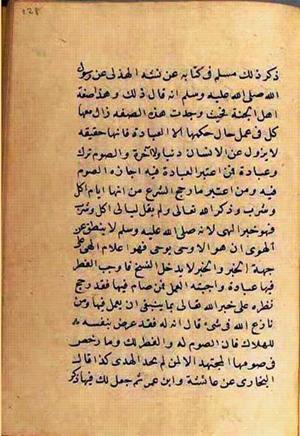 ذكر ذلك مسلم فى كتابه عن نبشة الهذلى عن رسول
الله صلى الله عليه وسلم انه قال ذلك وهذا صفة
اهل الجنة فحيث وجدت هذه الصفه زال معها
كل فى عمل حال حكمها الا العبادة فانها حقيقه
لا يزول عن الانسان دنيا ولا آخرة والصوم ترك
وعبادة فمن اعتبر العبادة فيه اجازه الصوم
فيه ومن اعتبر ما رجح الشرع من انها ايام اكل
وشرب وذكر الله تعالى ولم يقل ليالى اكل وشرب
فهو خبر الهى لانه صلى الله عليه وسلم لا ينطق عن
الهوى ان هو الا وحى يوحى فهو اعلام الهى على
جهة الخبر والخبر لا يدخله النسخ فاوجب الفطر
فيها عبادة واجبته العمل فمن صام فيها فقد رجح
نظره على خبر الله تعالى بما ينبغى ان يعمل فيها ومن
نازع الله فى شئ قال انه له فقد عرض بنفسه
للهلاك فان الصوم له والفطر لك وما رخص
فى صومها المجتهد الا لمن لم يجد الهدى كذا قال
البخارى عن عائشة وابن عمر ثم جعل لك فيها ذكر